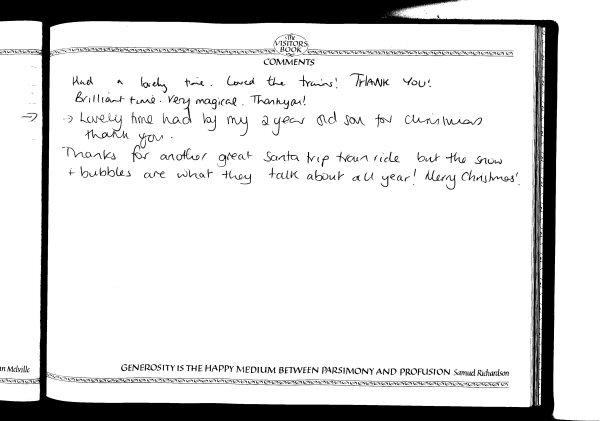 The
VISITORS
BOOK
COMMENTS
Had a lovely time. Loved the trains! THANK YOU!
Brilliant time. Very magical. Thankyou!
→ Lovely time had by my 2 year old son for christmas
thank you.
Thanks for another great Santa trip train ride but the snow
+ bubbles are what they talk about all year! Merry Christmas!
an Melville
GENEROSITY IS THE HAPPY MEDIUM BETWEEN PARSIMONY AND PROFUSION Samuel Richardson